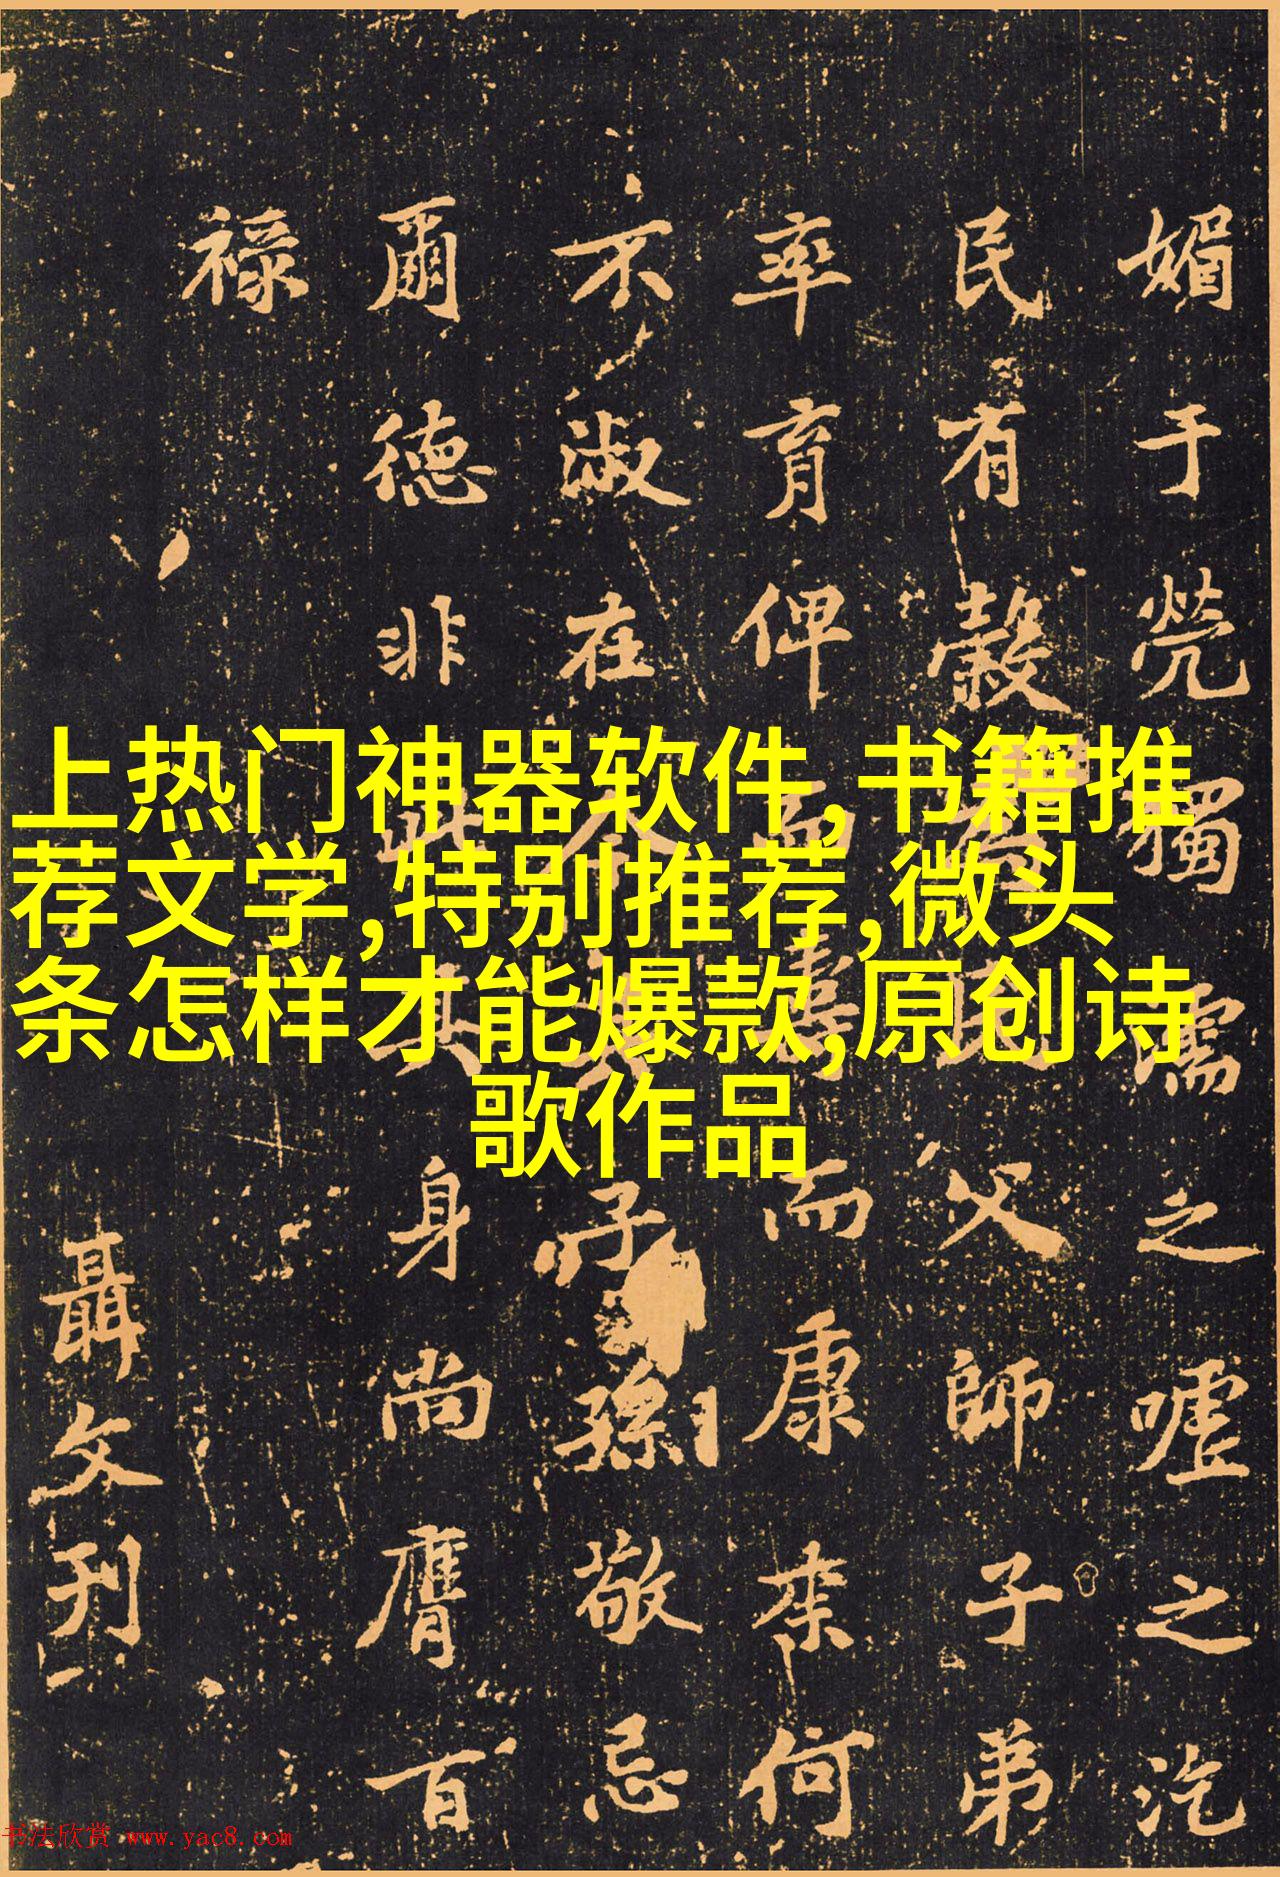 媚于煢獨濡之嘘之汔
民有穀父師子弟
率育俾而壽而康来何
不淑在子孫敬忌
爾德非此其身尚膺百
禄
聶文刊
上热门神器软件,书籍推
荐文学,特别推荐,微头
条怎样才能爆款,原创诗
歌作品
书法欣赏 www.yac8.com